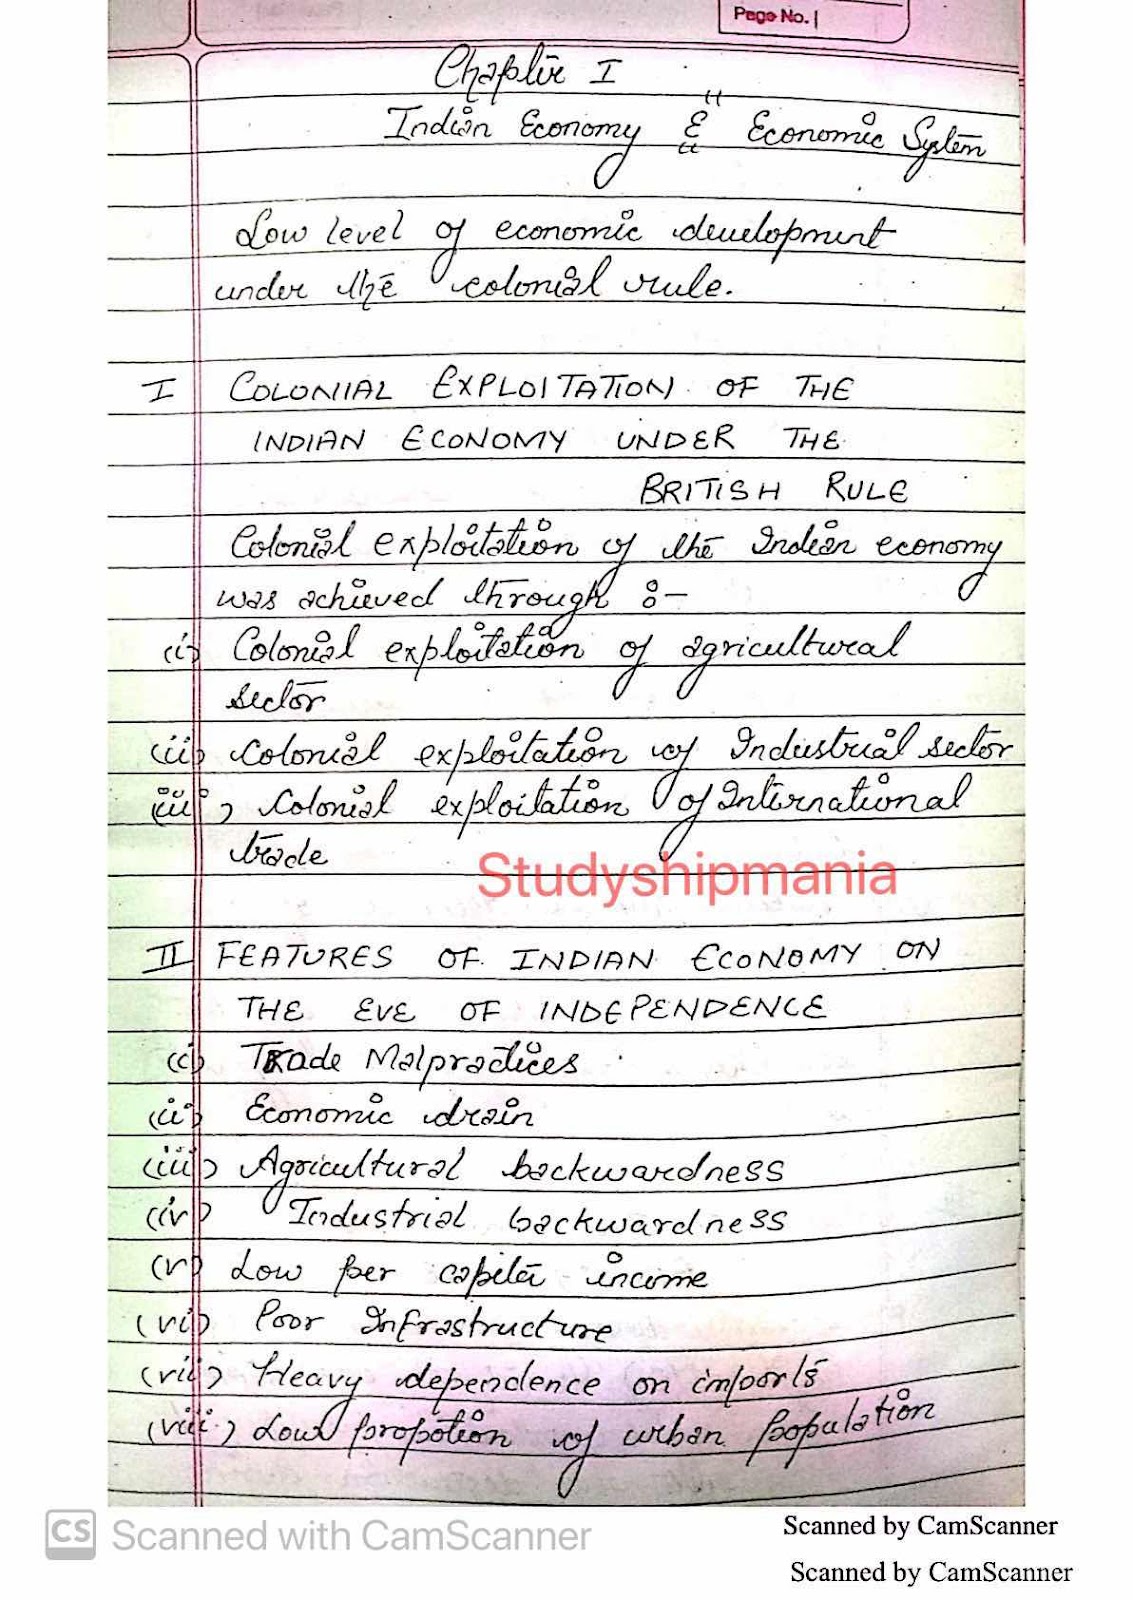 Page No. |
Chapter I
Indian Economy & Economic System
Low level of economic development
under the colonial rule.
I COLONIAL EXPLOITATION OF THE
INDIAN ECONOMY UNDER THE
BRITISH RULE
Colonial exploitation of the Indian economy
was achieved through :-
(i) Colonial exploitation of agricultural
sector
(ii) Colonial exploitation of Industrial sector
(iii) Colonial exploitation of International
trade
Studyshipmania
II FEATURES OF INDIAN ECONOMY ON
THE EVE OF INDEPENDENCE
(i) Trade Malpractices
(ii) Economic drain
(iii) Agricultural backwardness
(iv) Industrial backwardness
(v) Low per capita income
(vi) Poor Infrastructure
(vii) Heavy dependence on imports
(viii) Low propotion of urban population
CS Scanned with CamScanner
Scanned by CamScanner
Scanned by CamScanner